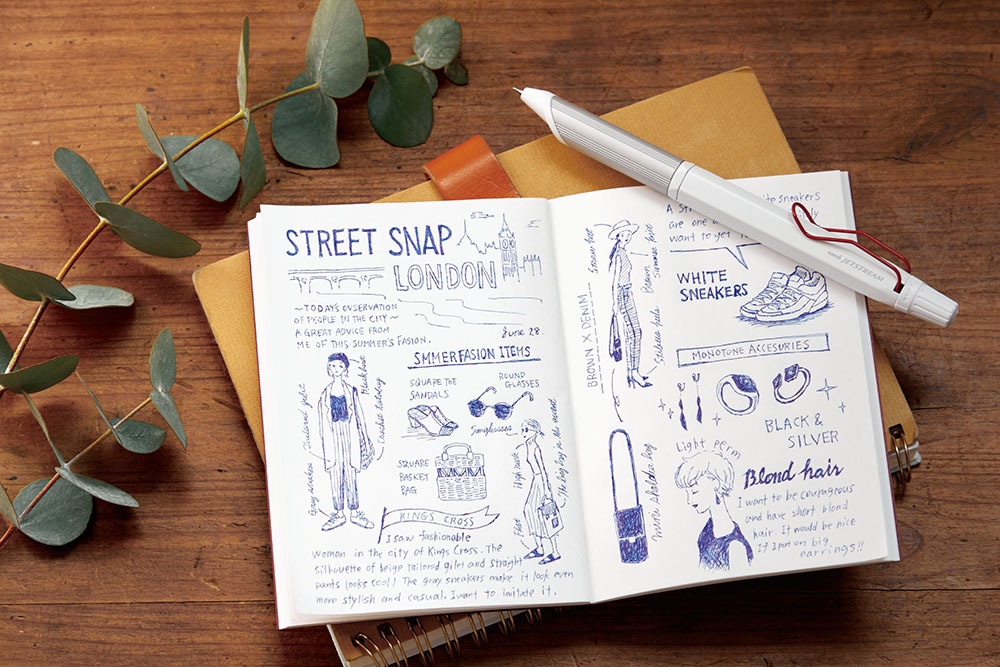 STREET SNAP
LONDON
~TODAY'S OVSERVATION
OF PEOPLE IN THE CITY~
A GREAT ADVICE FROM
ME OF THIS SUMMER'S FASION.
June 28.
SMMERFASION ITEMS
SQUARE TOE
SANDALS
ROUND
GLASSES
Sunglasses
SQUARE
BASKET
BAG
High neck
The big bag is the accent
KINGS CROSS
I saw fashionable
women in the city of Kings Cross. The
silhouette of beige tailored gilet and straight
pants looks cool! The gray sneakers make it look even
more stylish and casual. I want to imitate it.
Straw hat
BROWN X DENIM
Brown Summer knit
white sneakers
are one
want to get
WHITE
SNEAKERS
uni JETSTREAM
MONOTUNE ACCESURIES
BLACK &
SILVER
Light perm
Blond hair
I want to be courageous
and have short blond
hair. It would be nice
if I put on big
earrings!!